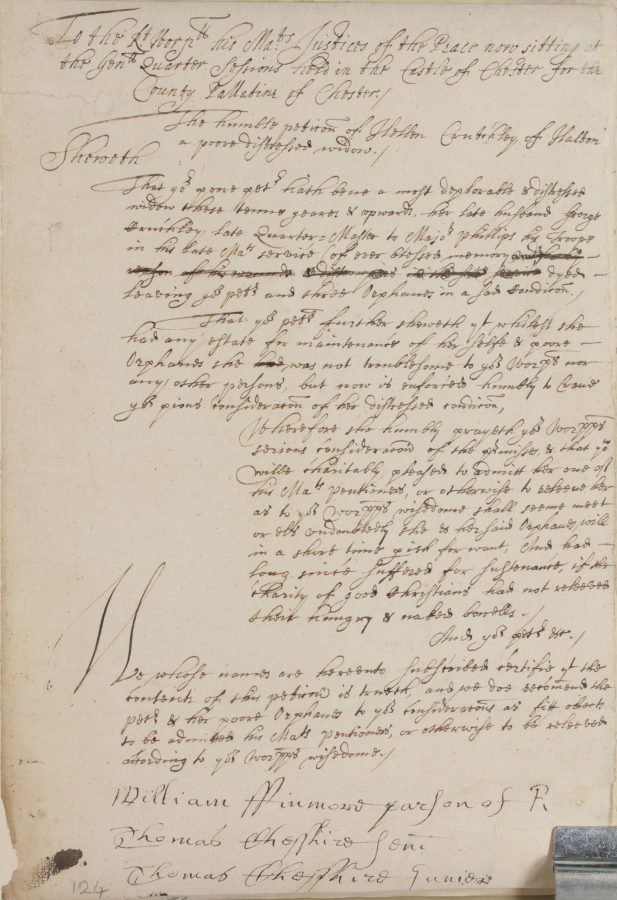 To the Rt Worpll his Mats Justices of the Peace now sitting at
the Genll Quarter Sessions held in the Castle of Chester for the
County Pallatine of Chester /
The humble peticon of Hellen Crutchley of Halton
a poore distressed widow. /
Sheweth
That yor poore petr hath bene a most deplorable & distressed
widow these tenne yeares & upwards, her late husband George
Crutchley late Quarter=Master to Major Phillips his troope
in his late Mats service (of ever blessed memory
reason of his wounds & in the said service dyed
leaving yor petr and three Orphanes in a sad condicon /
That yor petr further sheweth yt whilest she
had any estate for maintenance of her selfe & poore
Orphanes she had was not troublesome to yor Worpps nor
any other persons, but now is enforced humbly to Crave
yor pious consideracon of her distressed condicon,
Wherefore she humbly prayeth yor Worpps
serious consideracon of the premises, & that you
wilbe charitably pleased to admitt her one of
his Mats pentioners, or otherwise to releeve her
as to yor Worpps wisedome shall seeme meet
or els undoubtedly she & her said Orphanes will
in a short time pish for want, And had
long since suffered for sustenance, if the
charity of good Christians had not releeved
their hungry & naked bowells. /
And yor petr &c. /
We whose names are hereunto subscribed certifie yt the
contents of this peticon is trueth, and we doe recomend the
petr & her poore Orphanes to yor consideracons as fitt objects
to be admitted his Mats pentioners, or otherwise to be releeved
according to yor Worpps wisedome. /
William Ffinmore parson of R
Thomas Chesshire Seni
Thomas Chesshire Junier
124